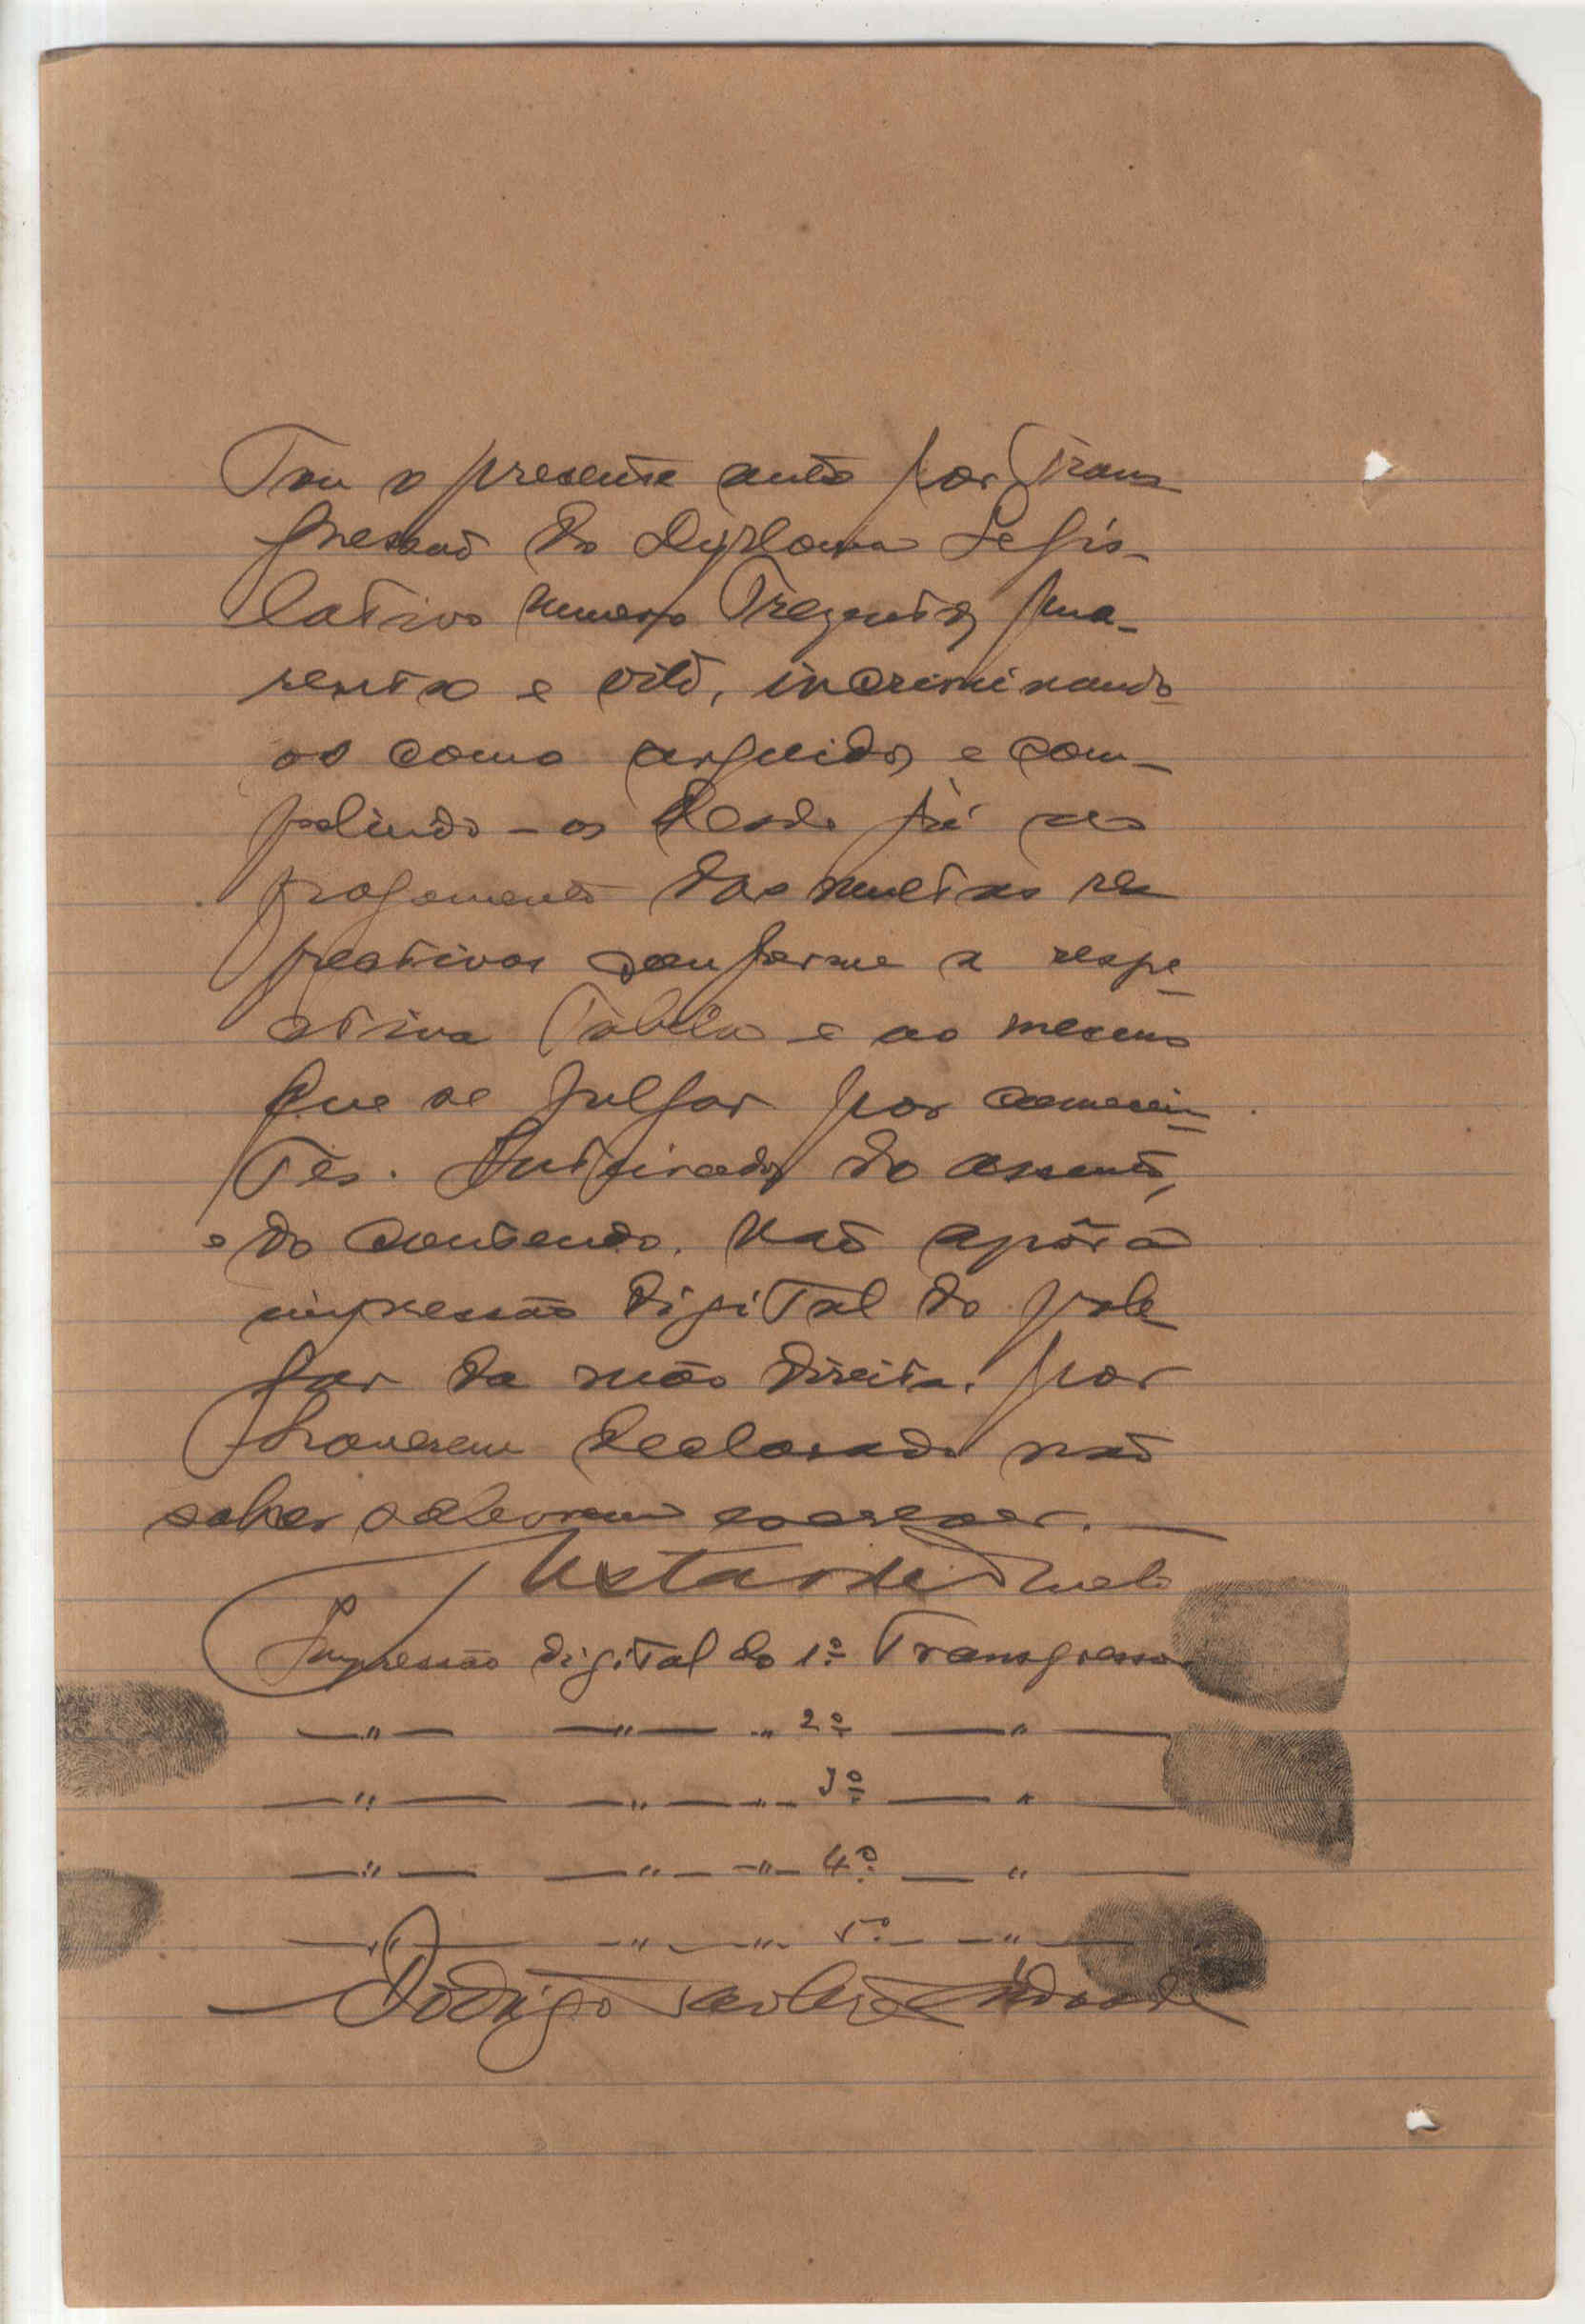 o presente auto por trans
gressão do Diploma Legis-
lativo numero Trezentos qua-
renta e oito, incriminando
os como arguidos e com-
pelindo-os desde já ao
pagamento das multas res
pectivas conforme a respe
ctiva Tabela e ao mesmo
que se julgar por
tes. Inteirados do assunto,
e do contendo. Vão apôr a
impressão digital do pole
gar da mão direita. por
haverem declarado não
saber escrever.
Impressão digital do 1º Transgressor
—"— —"— " 2º —"—
—"— —"— " 3º —"—
—"— —"— " 4º —"—
—"— —"— " 5º —"—
Rodrigo